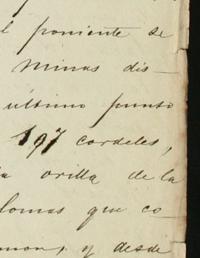 l poniente de
Minas dis-
último punto
197 cordeles,
orilla de la
lomas que co-
y desde